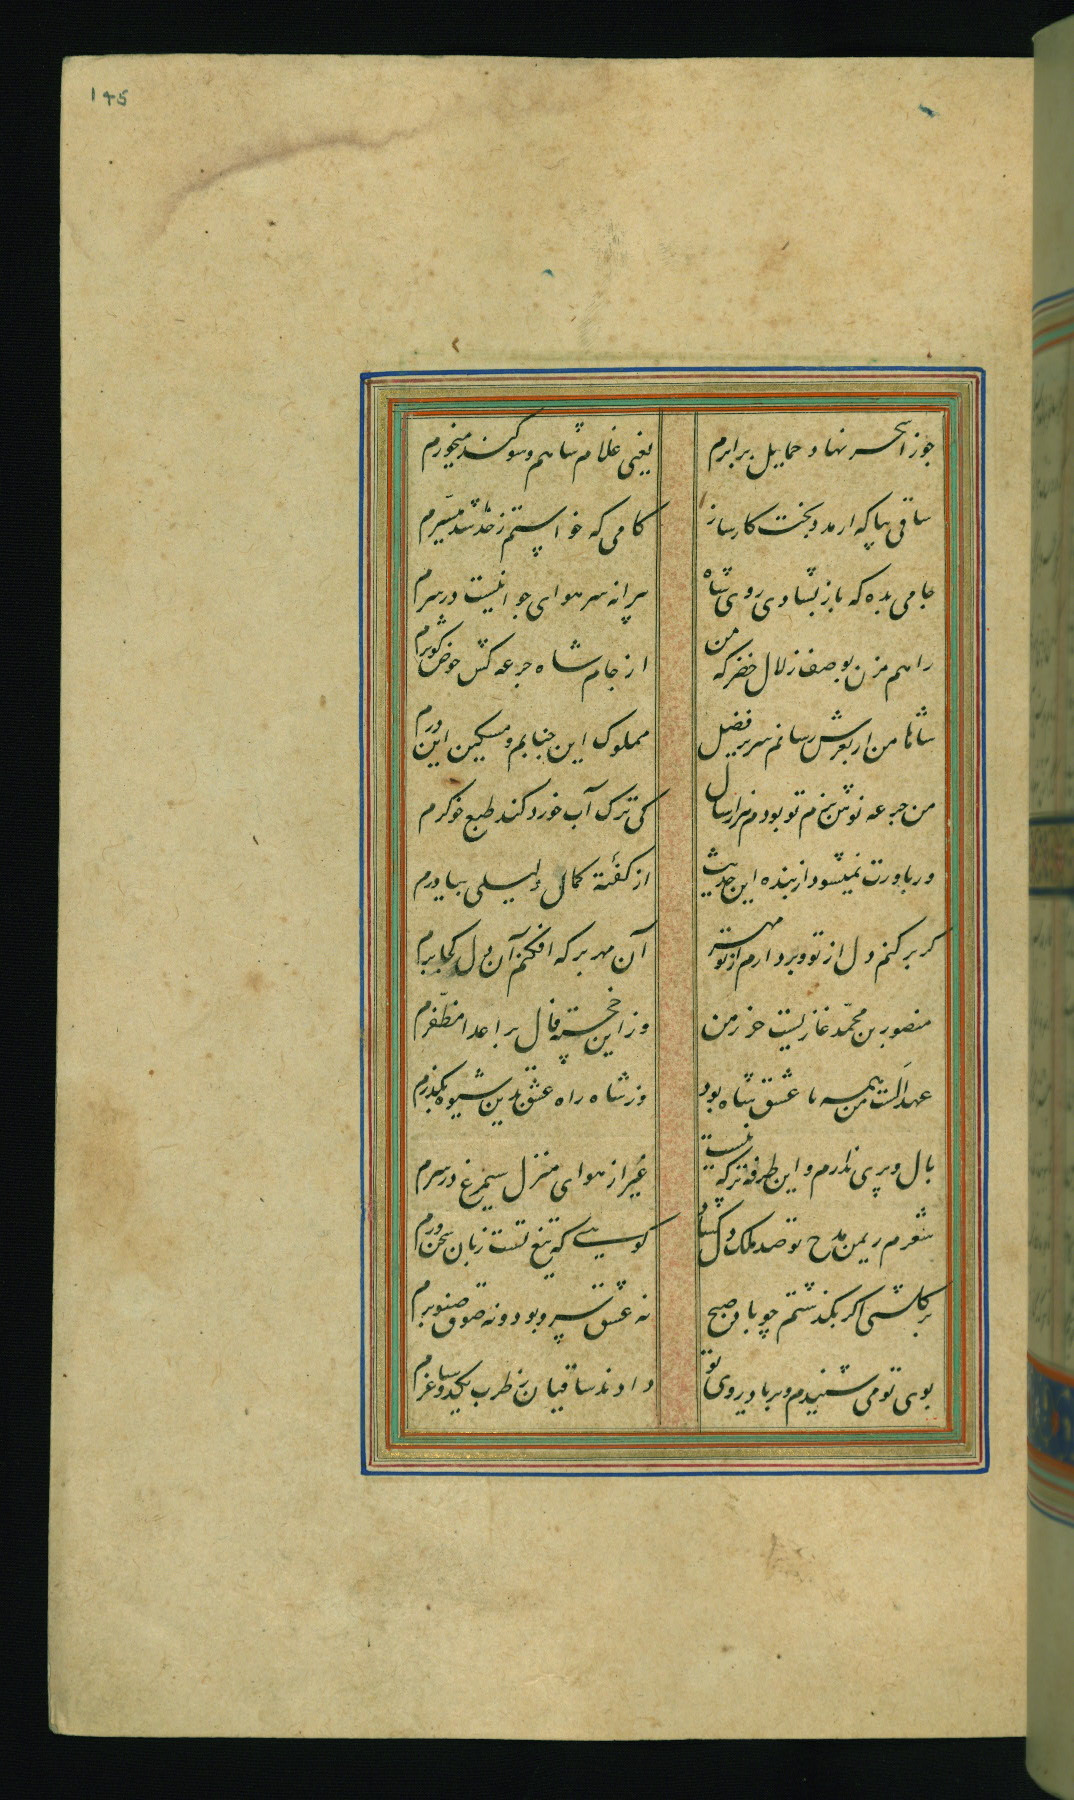 145
جوزا سحر نهاد حمایل برابرم
یعنی غلام شاهم و سوکند میخورم
ساقی بیا که از مدد بخت کارساز
کامی که خواستم ز خدا شد میسّرم
جامی بده که باز بشادی روی شاه
پیرانه سر هوای جوانیست در سرم
راهم مزن بوصف زلال خضر که من
از جام شاه جرعه کش حوض کوثرم
شاها من ار بعرش رسانم سریر فضل
مملوک این جنابم و مسکین این درم
من جرعه نوش بزم تو بودم هزار سال
کی ترک آب خورد کند طبع خوکرم
ور باورت نمیشود از بنده این حدیث
از کفتهٔ کمال دلیلی بیاورم
کر برکنم دل از تو و بردارم از تو مهر
آن مهر بر که افکنم آن دل کجا برم
منصور بن محمّد غازیست حرز من
وز این خجسته فال بر اعدا مظفّرم
عهد الَست من همه با عشق شاه بود
وز شاه راه عشق بدین شیوه بکذرم
بال و پری ندارم و این طرفه تر که نیست
غیر از هوای منزل سیمرغ در سرم
شعرم ز یمن مدح تو صد ملک دل کشاد
کویی که تیغ تست زبان سخن ورم
بر کلشنی اکر بکذشتم چو باد صبح
نه عشق سرو بود و نه شوق صنوبرم
بوی تو می شنیدم و بر یاد روی تو
دادند ساقیان طرب یکدو ساغرم